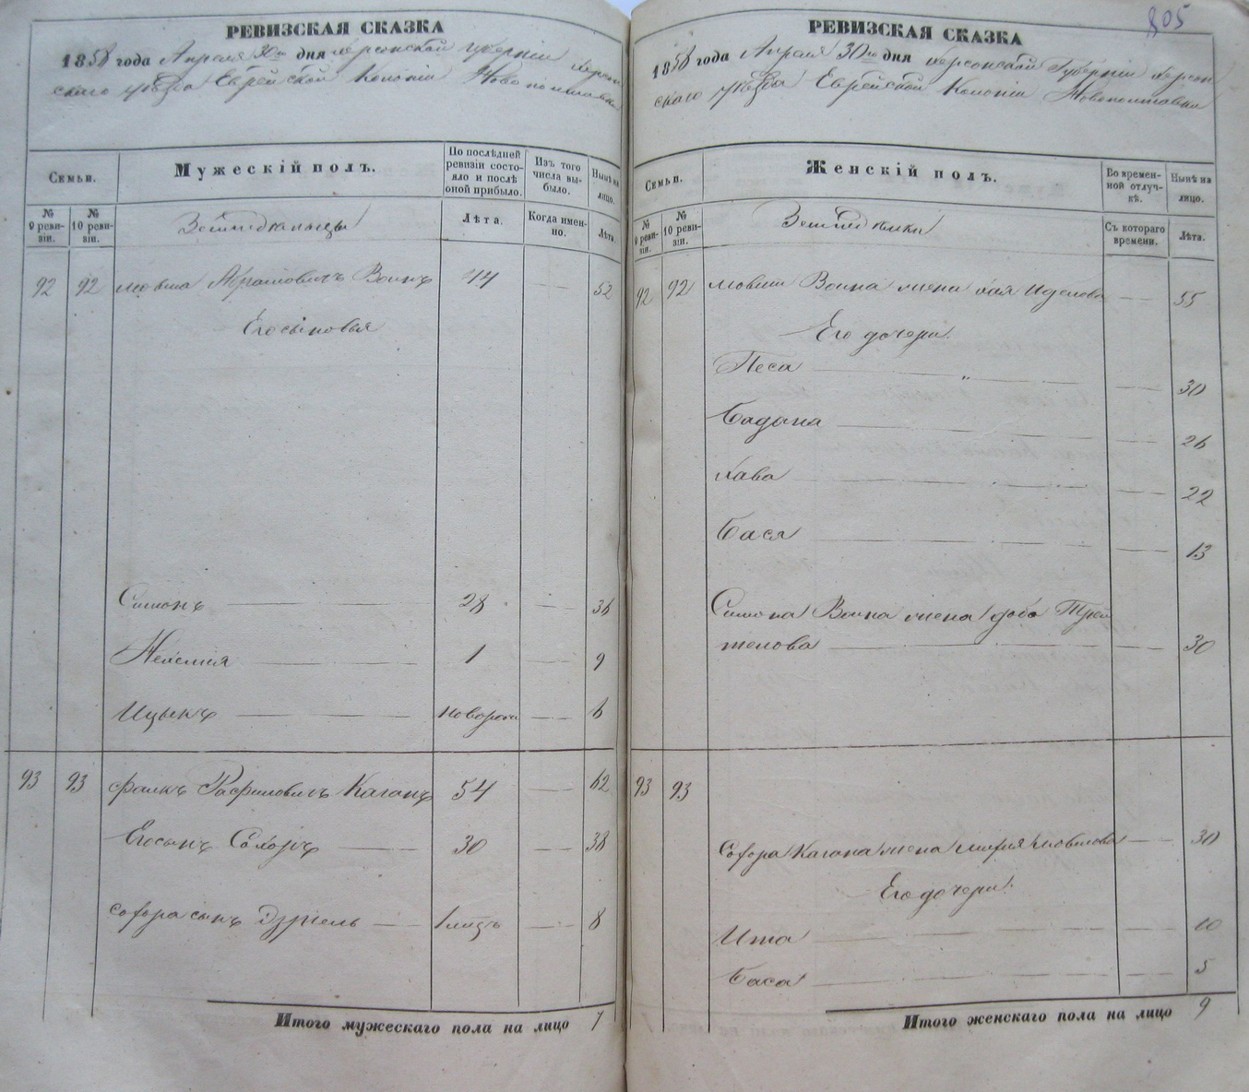 РЕВИЗСКАЯ СКАЗКА
1858 года Апреля 30го дня Херсонской губерніи Херсон
скаго уезда Еврейской Колоніи Новополтавка
Семьи.
Мужескій полъ.
По послѣдней ревизіи состояло и послѣ оной прибыло.
Изъ того числа выбыло.
Нынѣ на лицо.
№ 9 ревизіи.
№ 10 ревизіи.
Лѣта.
Когда именно.
Лѣта.
92 92 Мовша Абрамовичъ Воинъ 44 52
Его сыновья
Симонъ 28 36
Нехемия 1 9
Ицыкъ новорож 6
93 93 Фалкъ Рафиловичъ Каганъ 54 62
Его сынъ Сохоръ 30 38
Сохора сынъ 1 8
Итого мужескаго пола на лицо 7
805
РЕВИЗСКАЯ СКАЗКА
1858 года Апреля 30го дня Херсонской Губерніи Херсон
скаго уезда Еврейской Колоніи Новополтавка
Семьи.
Женскій полъ.
Во временной отлучкѣ.
Нынѣ на лицо.
№ 9 ревизіи.
№ 10 ревизіи.
Съ котораго времени.
Лѣта.
92 92 Мовши Воина жена Хая Иделова 55
Его дочери
Песа 30
26
Хава 22
Бася 13
Симона Воина жена Доба
30
93 93
Сохора Кагана жена 30
Его дочери
Ита 10
Баса 5
Итого женскаго пола на лицо 9